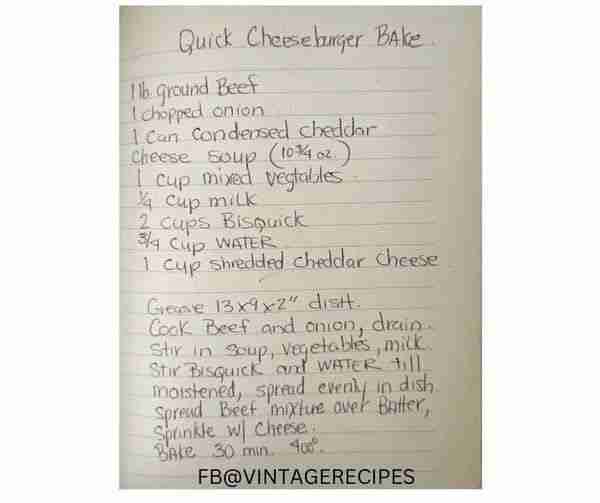 Quick Cheeseburger BAke.
1 lb. ground Beef
1 chopped onion
1 Can Condensed cheddar
Cheese soup (10 3/4 oz.)
1 cup mixed vegtables.
1/4 cup milk
2 cups Bisquick
3/4 Cup WATER
1 cup shredded Cheddar Cheese
Grease 13x9x2" dish.
Cook Beef and onion, drain.
Stir in soup, vegetables, milk.
Stir Bisquick and WATER till
moistened, spread evenly in dish
Spread Beef mixture over BAtter,
Sprinkle w/ Cheese.
BAke 30 min. 400°.
FB@VINTAGERECIPES